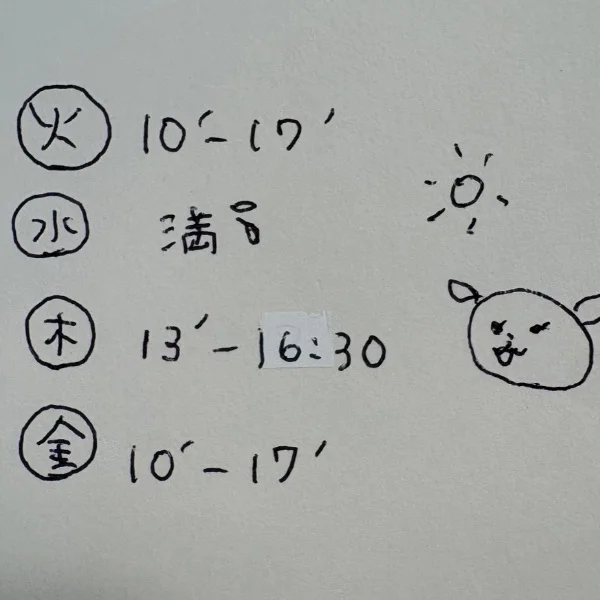 火 10′-17′
水 満員
木 13′-16:30
金 10′-17′